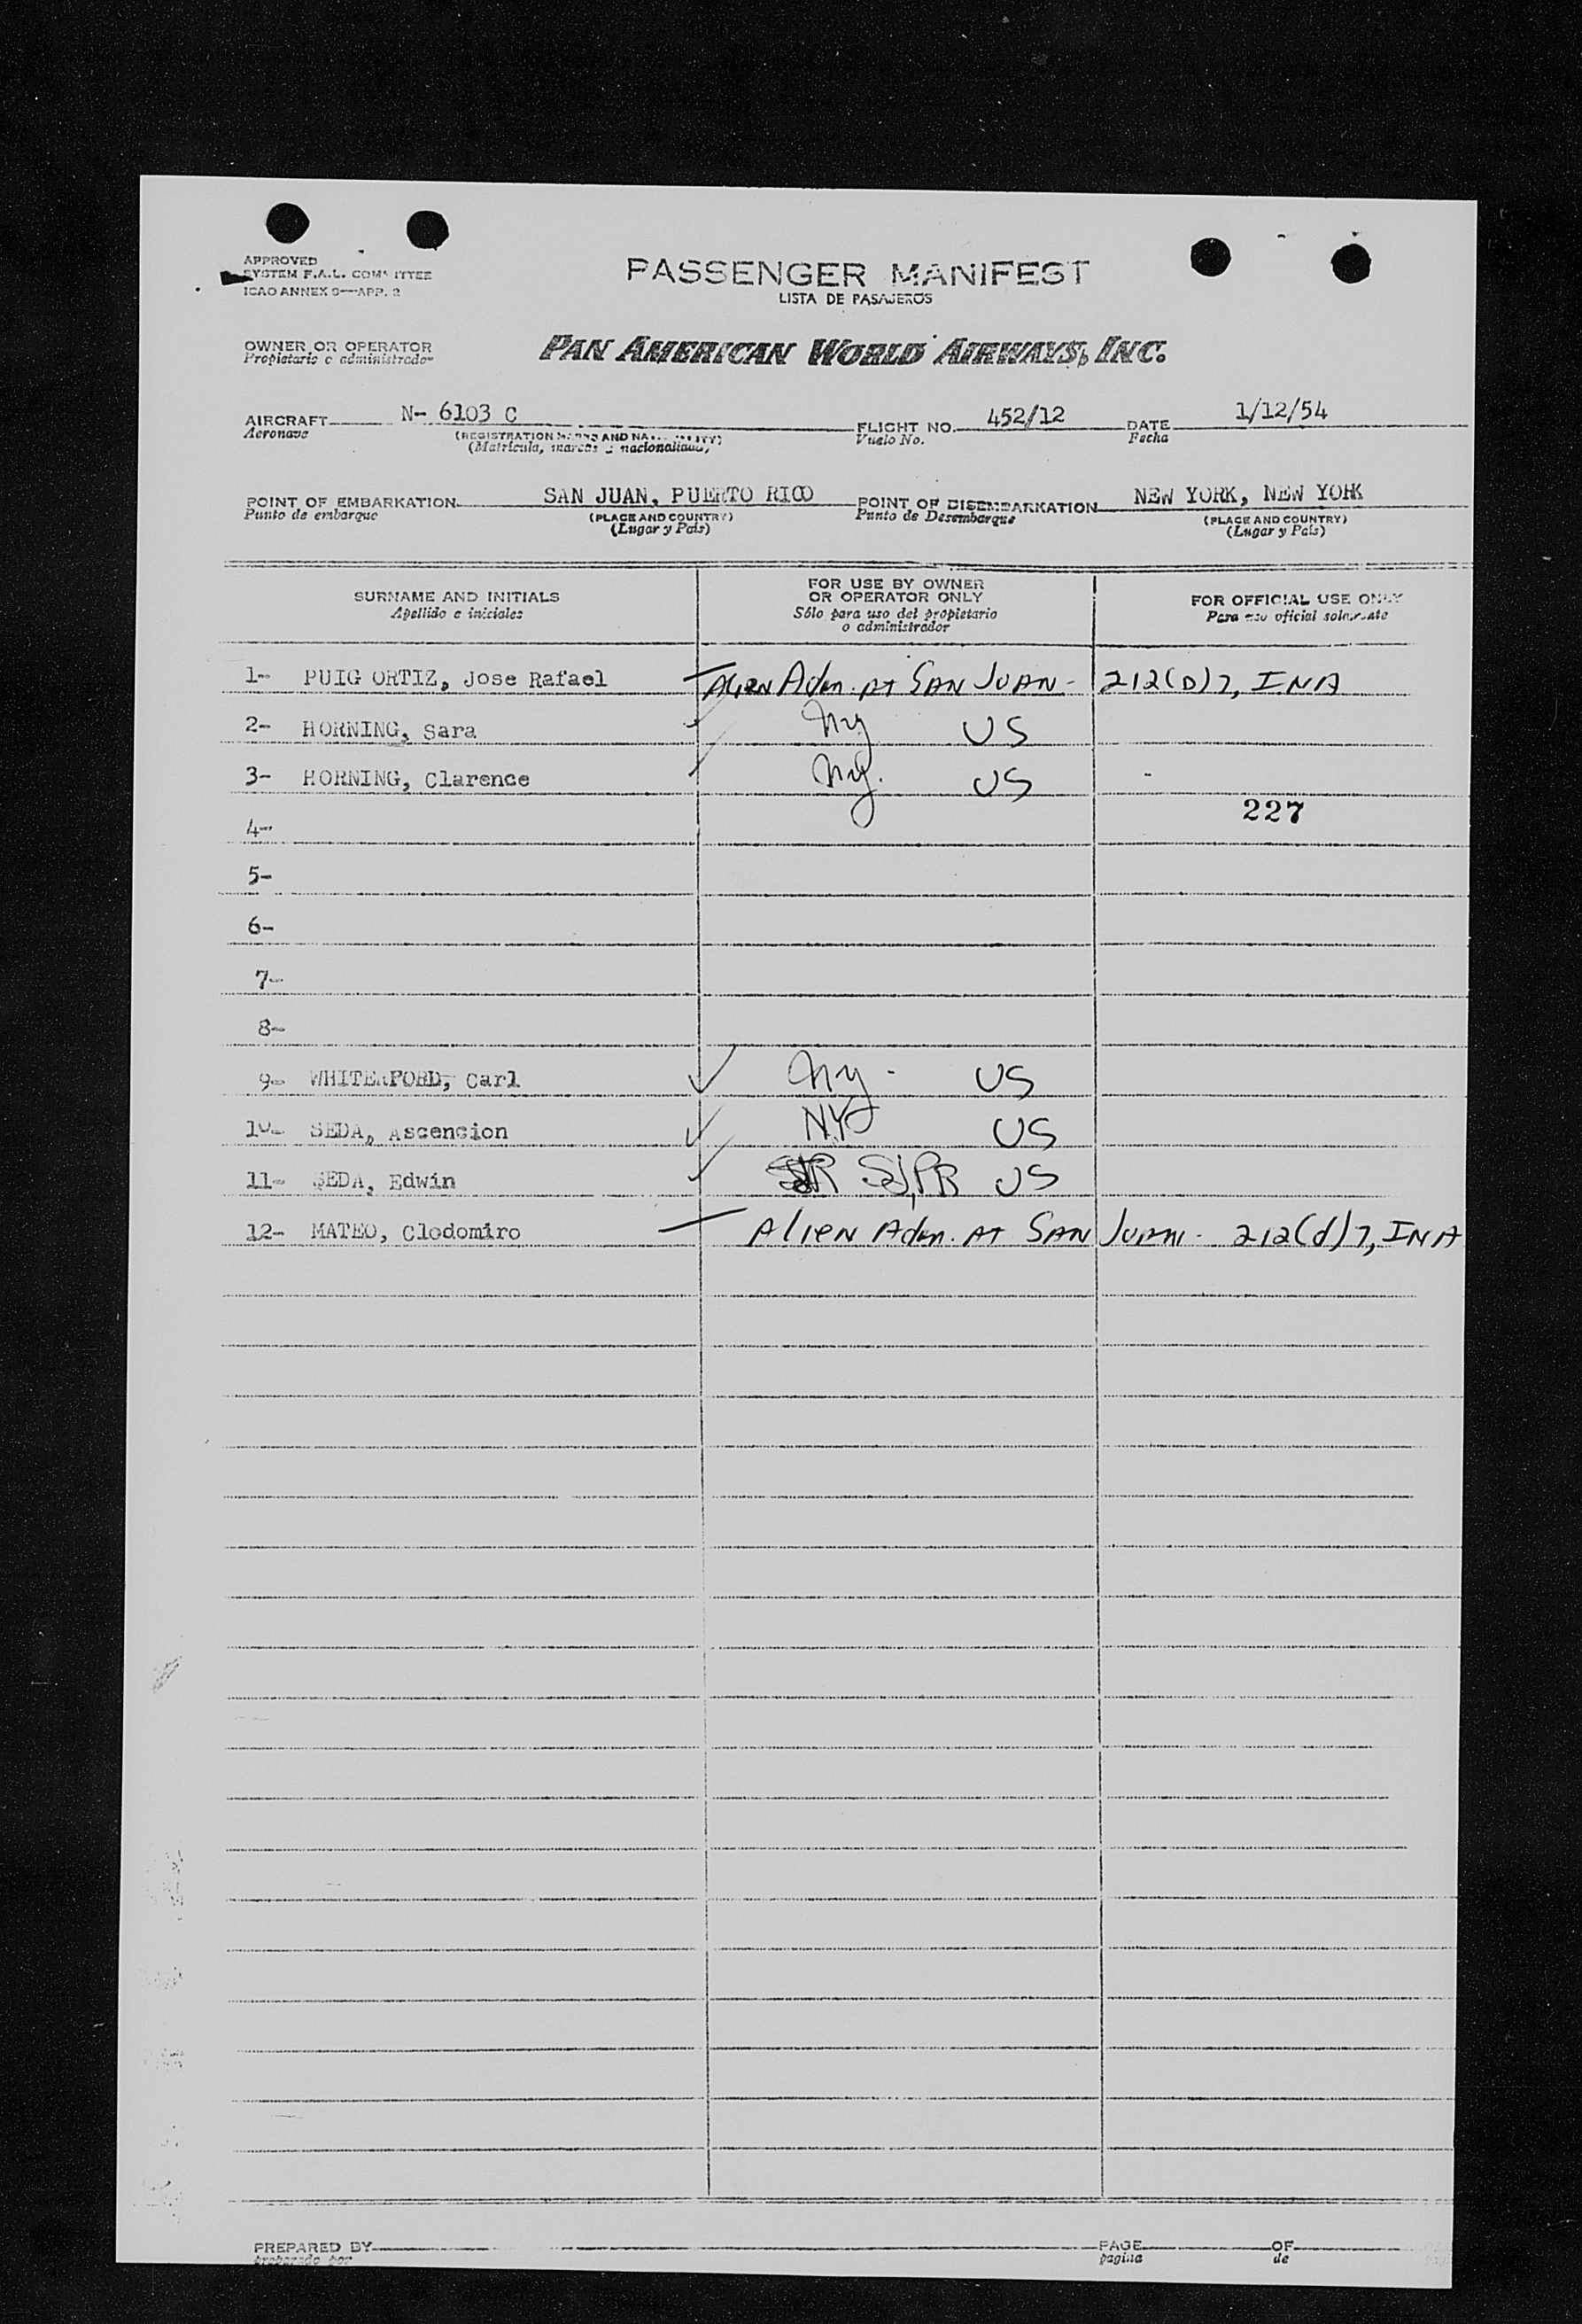 APPROVED
SYSTEM F.A.L. COMMITTEE
ICAO ANNEX 9—APP. 2
PASSENGER MANIFEST
LISTA DE PASAJEROS
OWNER OR OPERATOR
Propietario o administrador
PAN AMERICAN WORLD AIRWAYS, INC.
AIRCRAFT N- 6103 C FLIGHT NO. 452/12 DATE 1/12/54
Aeronave (REGISTRATION MARKS AND NATIONALITY) Vuelo No. Fecha
(Matrícula, marcas y nacionalidad)
POINT OF EMBARKATION SAN JUAN, PUERTO RICO POINT OF DISEMBARKATION NEW YORK, NEW YORK
Punto de embarque (PLACE AND COUNTRY) Punto de Desembarque (PLACE AND COUNTRY)
(Lugar y País) (Lugar y País)
SURNAME AND INITIALS
Apellido e iniciales
FOR USE BY OWNER
OR OPERATOR ONLY
Sólo para uso del propietario
o administrador
FOR OFFICIAL USE ONLY
Para uso oficial solamente
1- PUIG ORTIZ, Jose Rafael Alien Adm. At San Juan - 212(D)7, INA
2- HORNING, Sara Ny US
3- HORNING, Clarence Ny. US
227
4-
5-
6-
7-
8-
9- WHITEFORD, Carl Ny - US
10- SEDA, Ascencion NY US
11- SEDA, Edwin SJ, PR US
12- MATEO, Clodomiro Alien Adm. At San Juan - 212(d)7, INA
PREPARED BY PAGE OF
preparado por pagina de